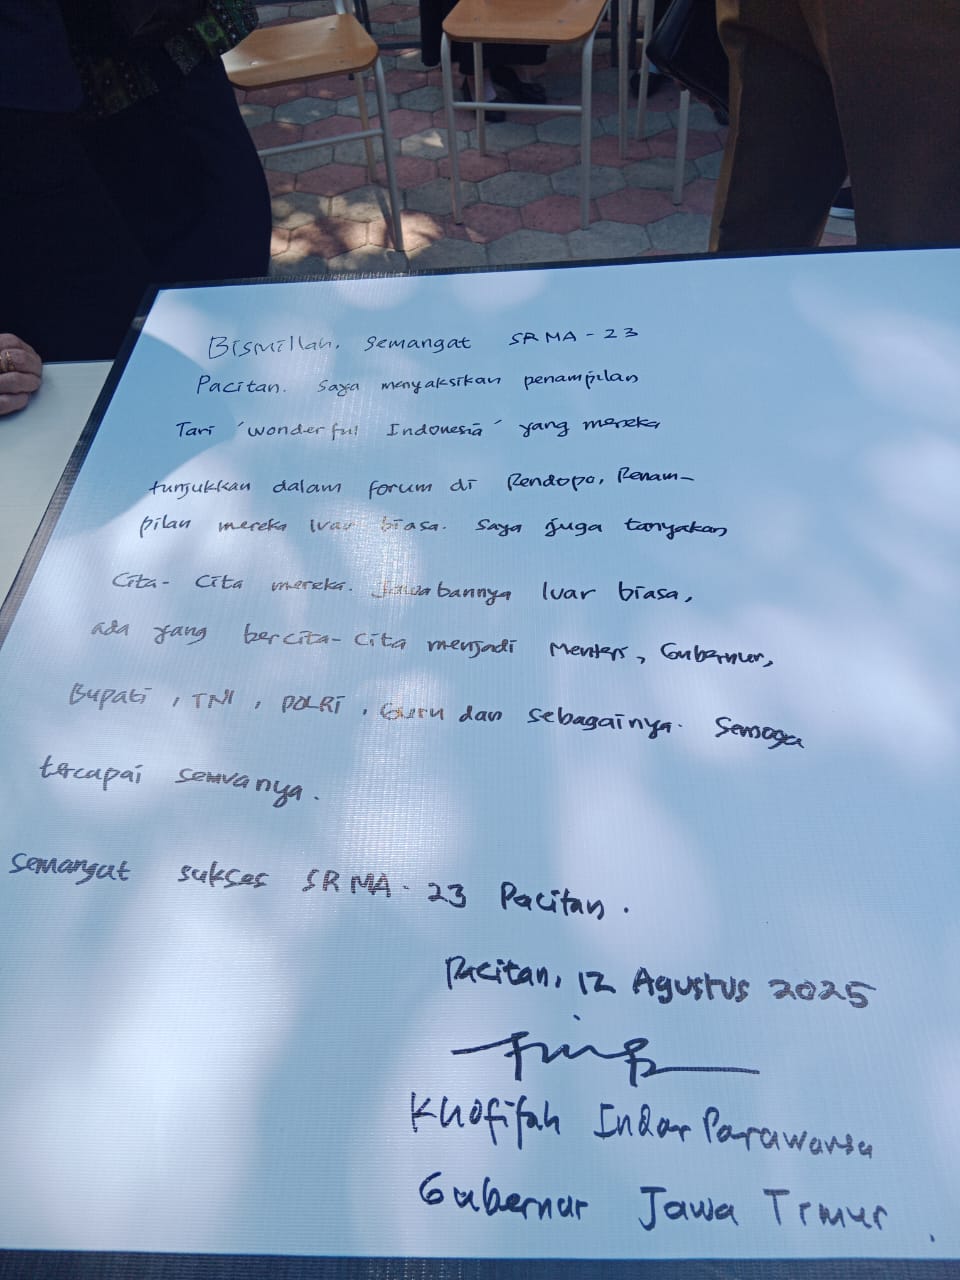 Bismillah, Semangat SRMA-23
Pacitan. Saya menyaksikan penampilan
Tari 'Wonderful Indonesia' yang mereka
tunjukkan dalam forum di Pendopo, Penam-
pilan mereka luar biasa. Saya juga tanyakan
Cita-cita mereka. Jawabannya luar biasa,
ada yang bercita-cita menjadi Menteri, Gubernur,
Bupati, TNI, POLRI, Guru dan sebagainya. Semoga
tercapai semuanya.
Semangat sukses SRMA-23 Pacitan.
Pacitan, 12 Agustus 2025
Khofifah Indar Parawansa
Gubernur Jawa Timur.